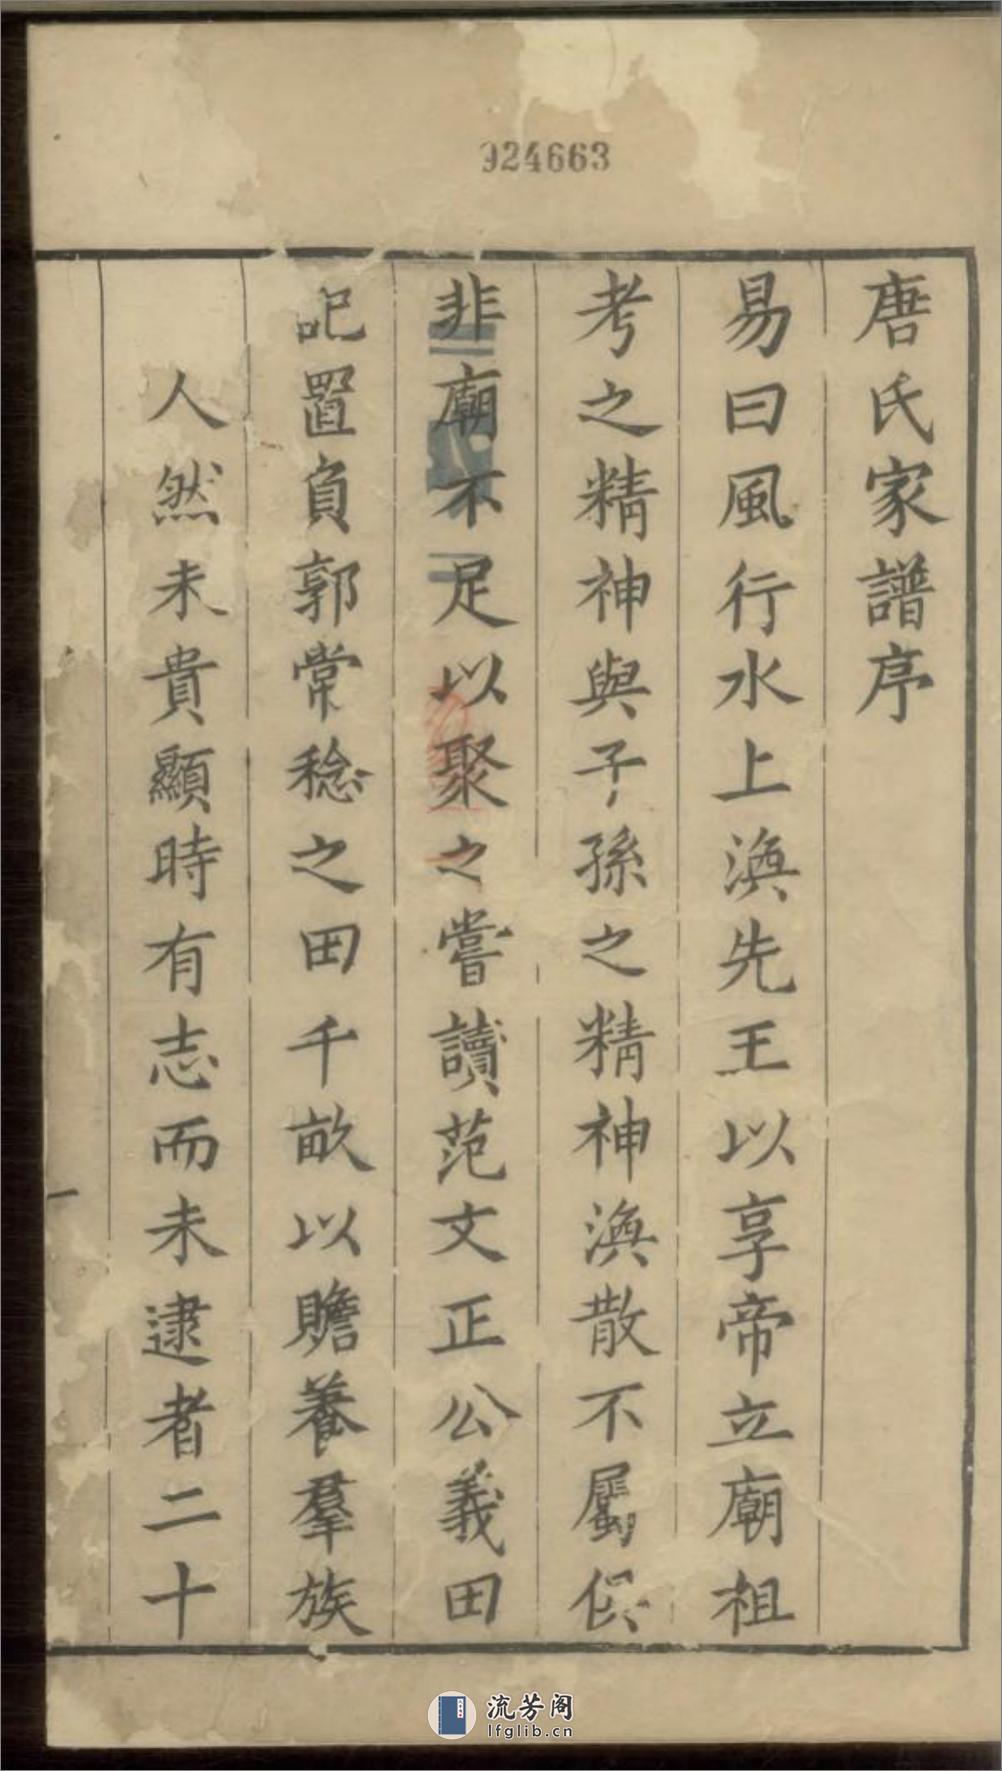 924663
唐氏家譜序
易曰風行水上渙先王以享帝立廟祖
考之精神與子孫之精神渙散不屬
非廟不足以聚之嘗讀范文正公義田
記置負郭常稔之田千畝以贍養羣族
人然未貴顯時有志而未逮者二十
流芳阁
lfglib.cn